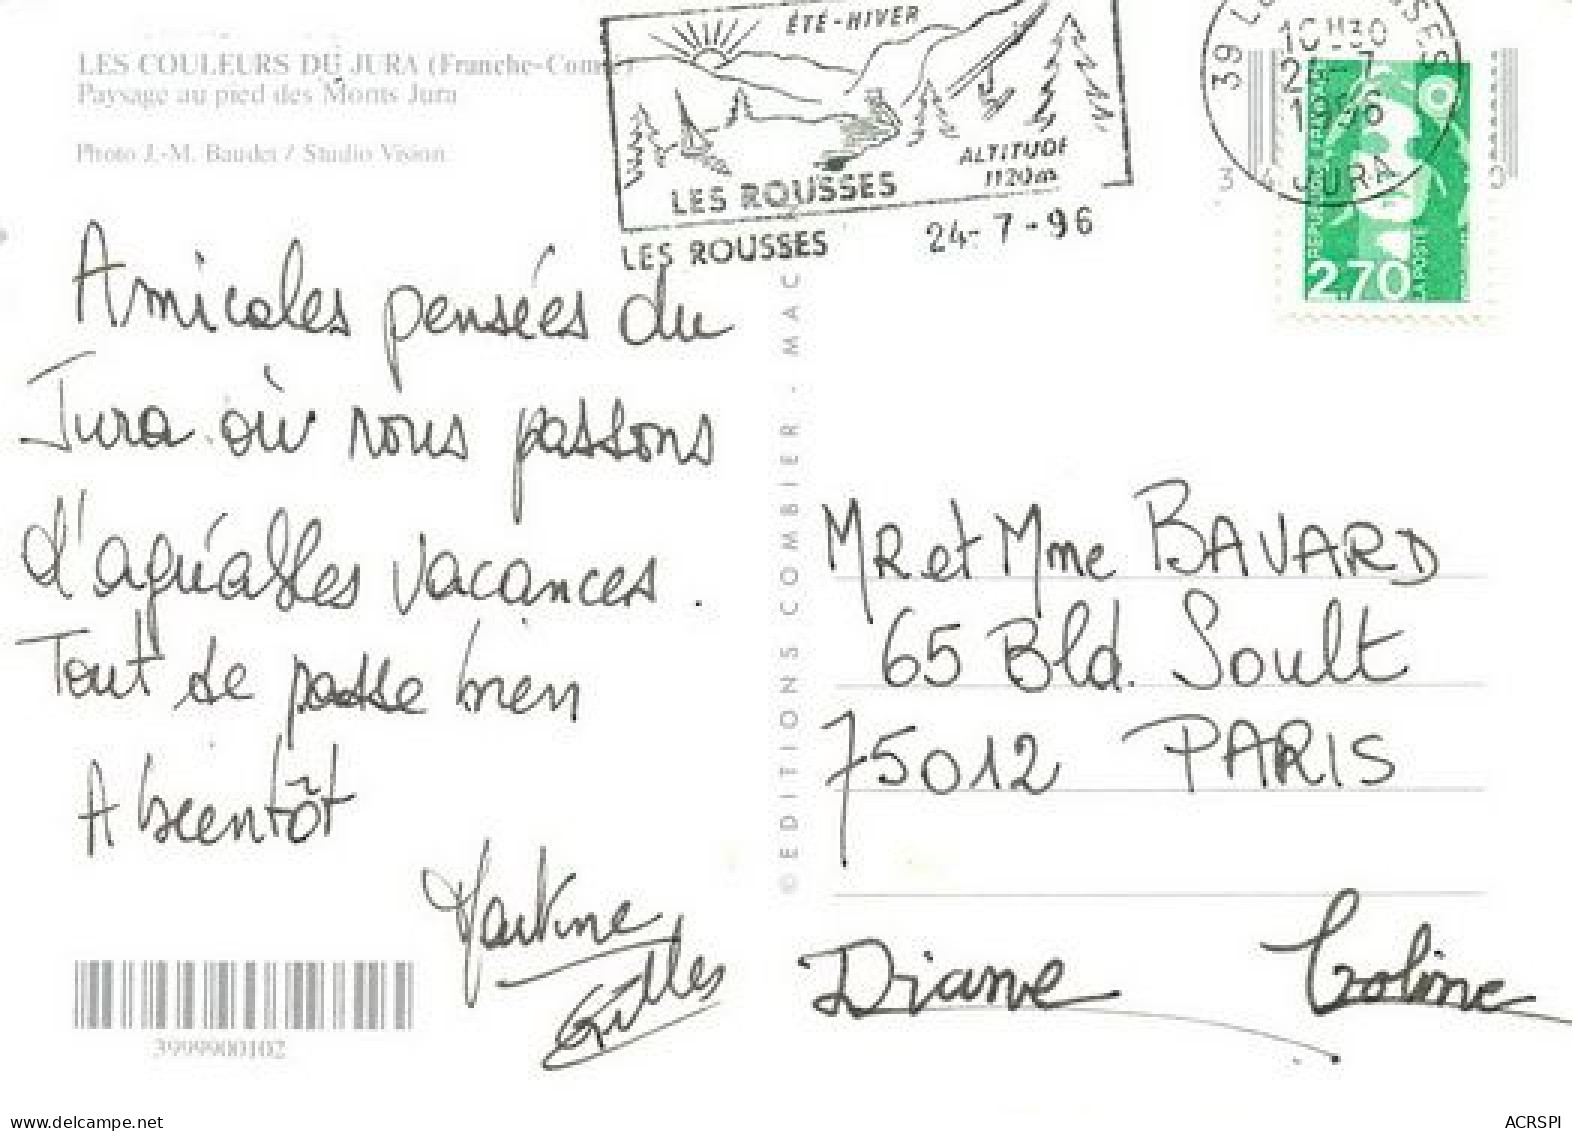 LES COULEURS DU JURA (Franche-Comté)
Paysage au pied des Monts Jura
Photo J.-M. Baudet / Studio Vision
ÉTÉ-HIVER
ALTITUDE
1120m
LES ROUSSES
LES ROUSSES
24-7-96
39
10H30
7
JURA
2,70
LA POSTE
Amicales pensées du
Jura où nous passons
d'agréables vacances.
Tout se passe bien
A bientôt
Martine
Gilles
© EDITIONS COMBIER - MAC
MR et Mme BAVARD
65 Bld. Soult
75012 PARIS
Diane
Coline
3999900102
www.delcampe.net
ACRSPI